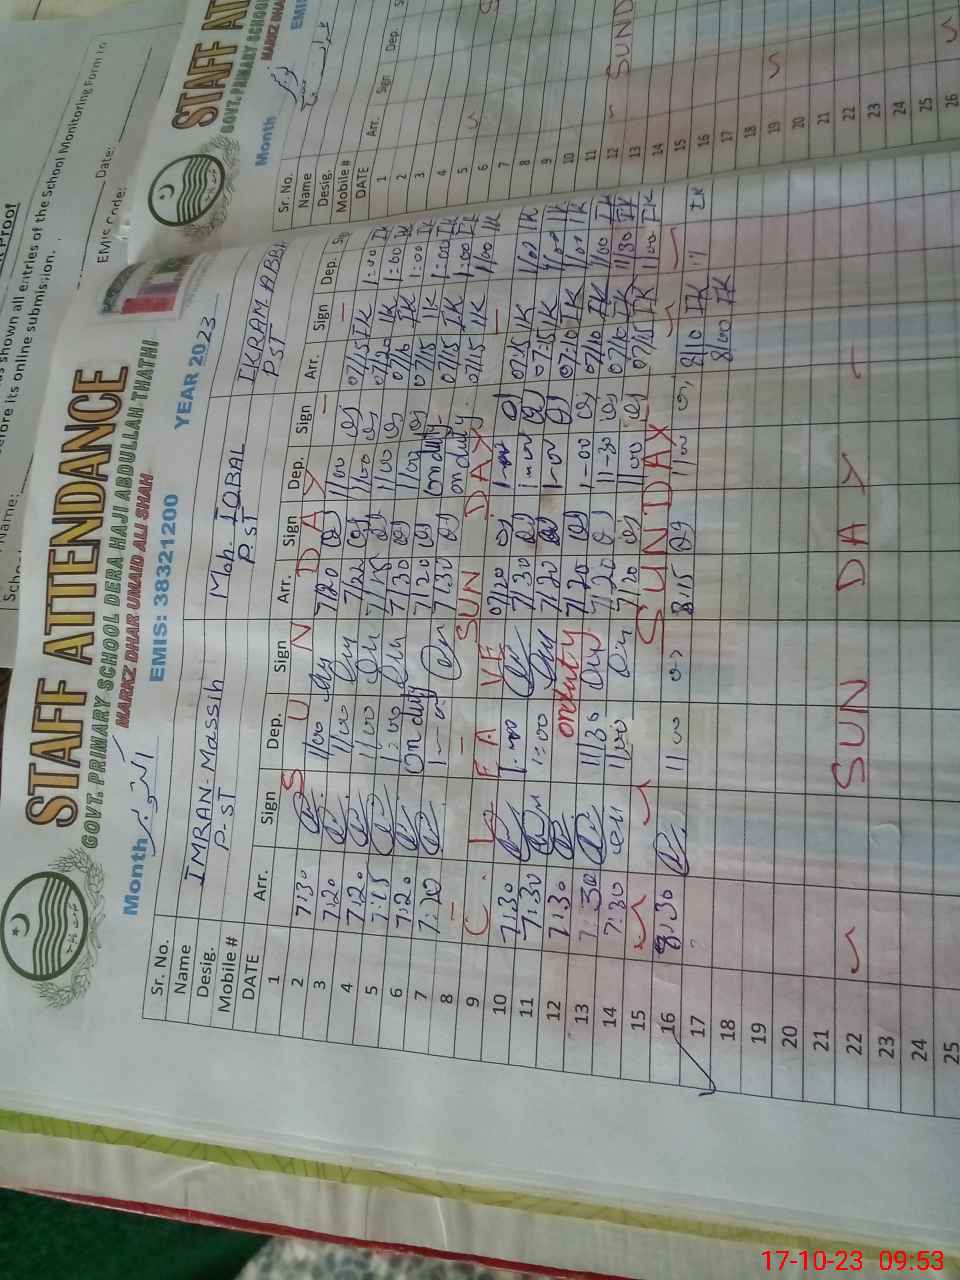 STAFF ATTENDANCE
GOVT. PRIMARY SCHOOL DERA HAJI ABDULLAH THATHI
MARKZ DHAR UMAID ALI SHAH
Month اکتوبر EMIS: 38321200 YEAR 2023
Sr. No.
Name IMRAN-Massih Moh. IQBAL IKRAM-ABBA
Desig. P-ST P.ST PST
Mobile #
DATE Arr. Sign Dep. Sign Arr. Sign Dep. Sign Arr. Sign Dep. Sig
1 S U N D A Y
2 7:30 1/00 7/20 1/00 07/15 IK 1:00 IK
3 7:20 1/00 7/22 1/00 07/20 IK 1:00 IK
4 7:20 1/00 7/15 1/00 07/16 IK 1:00 IK
5 7:15 1:00 7/30 1/00 07/15 IK 1:00 IK
6 7:20 On duty 7/20 on duty 07/15 IK 1:00 IK
7 7:20 7/30 on duty 07/15 IK 1/00 IK
8 SUN DAY
9 C. LEAVE 07/20 1-00 07:15 IK 1/00 IK
10 7:30 1-00 7/30 1-00 07:15 IK 1/00 IK
11 7:30 1:00 7/20 1-00 07:10 IK 1/00 IK
12 7:30 onduty 7/20 1-00 07/10 IK 1/00 IK
13 7:30 11/30 7/20 11-30 07/10 IK 11/30 IK
14 7:30 1/00 7/20 1/00 07/15 IK 1/00 IK
15 SUNDAY
16 8:30 11 00 8:15 11 00 8/10 IK IK
17 8/00 IK
18
19
20
21
22 SUN DAY
23
24
25
STAFF AT
GOVT. PRIMARY SCHOOL
MARKZ DHA
Month EMIS
Sr. No.
Name
Desig.
Mobile #
DATE Arr. Sign Dep.
1
2
3
4
5
6
7
8
9
10
11
12
13
14
15
16
17
18
19
20
21
22
23
24
25
26
SUND
t Proof
as shown all entries of the School Monitoring Form in
efore its online submission.
Name:
EMIS Code:
Date:
17-10-23 09:53